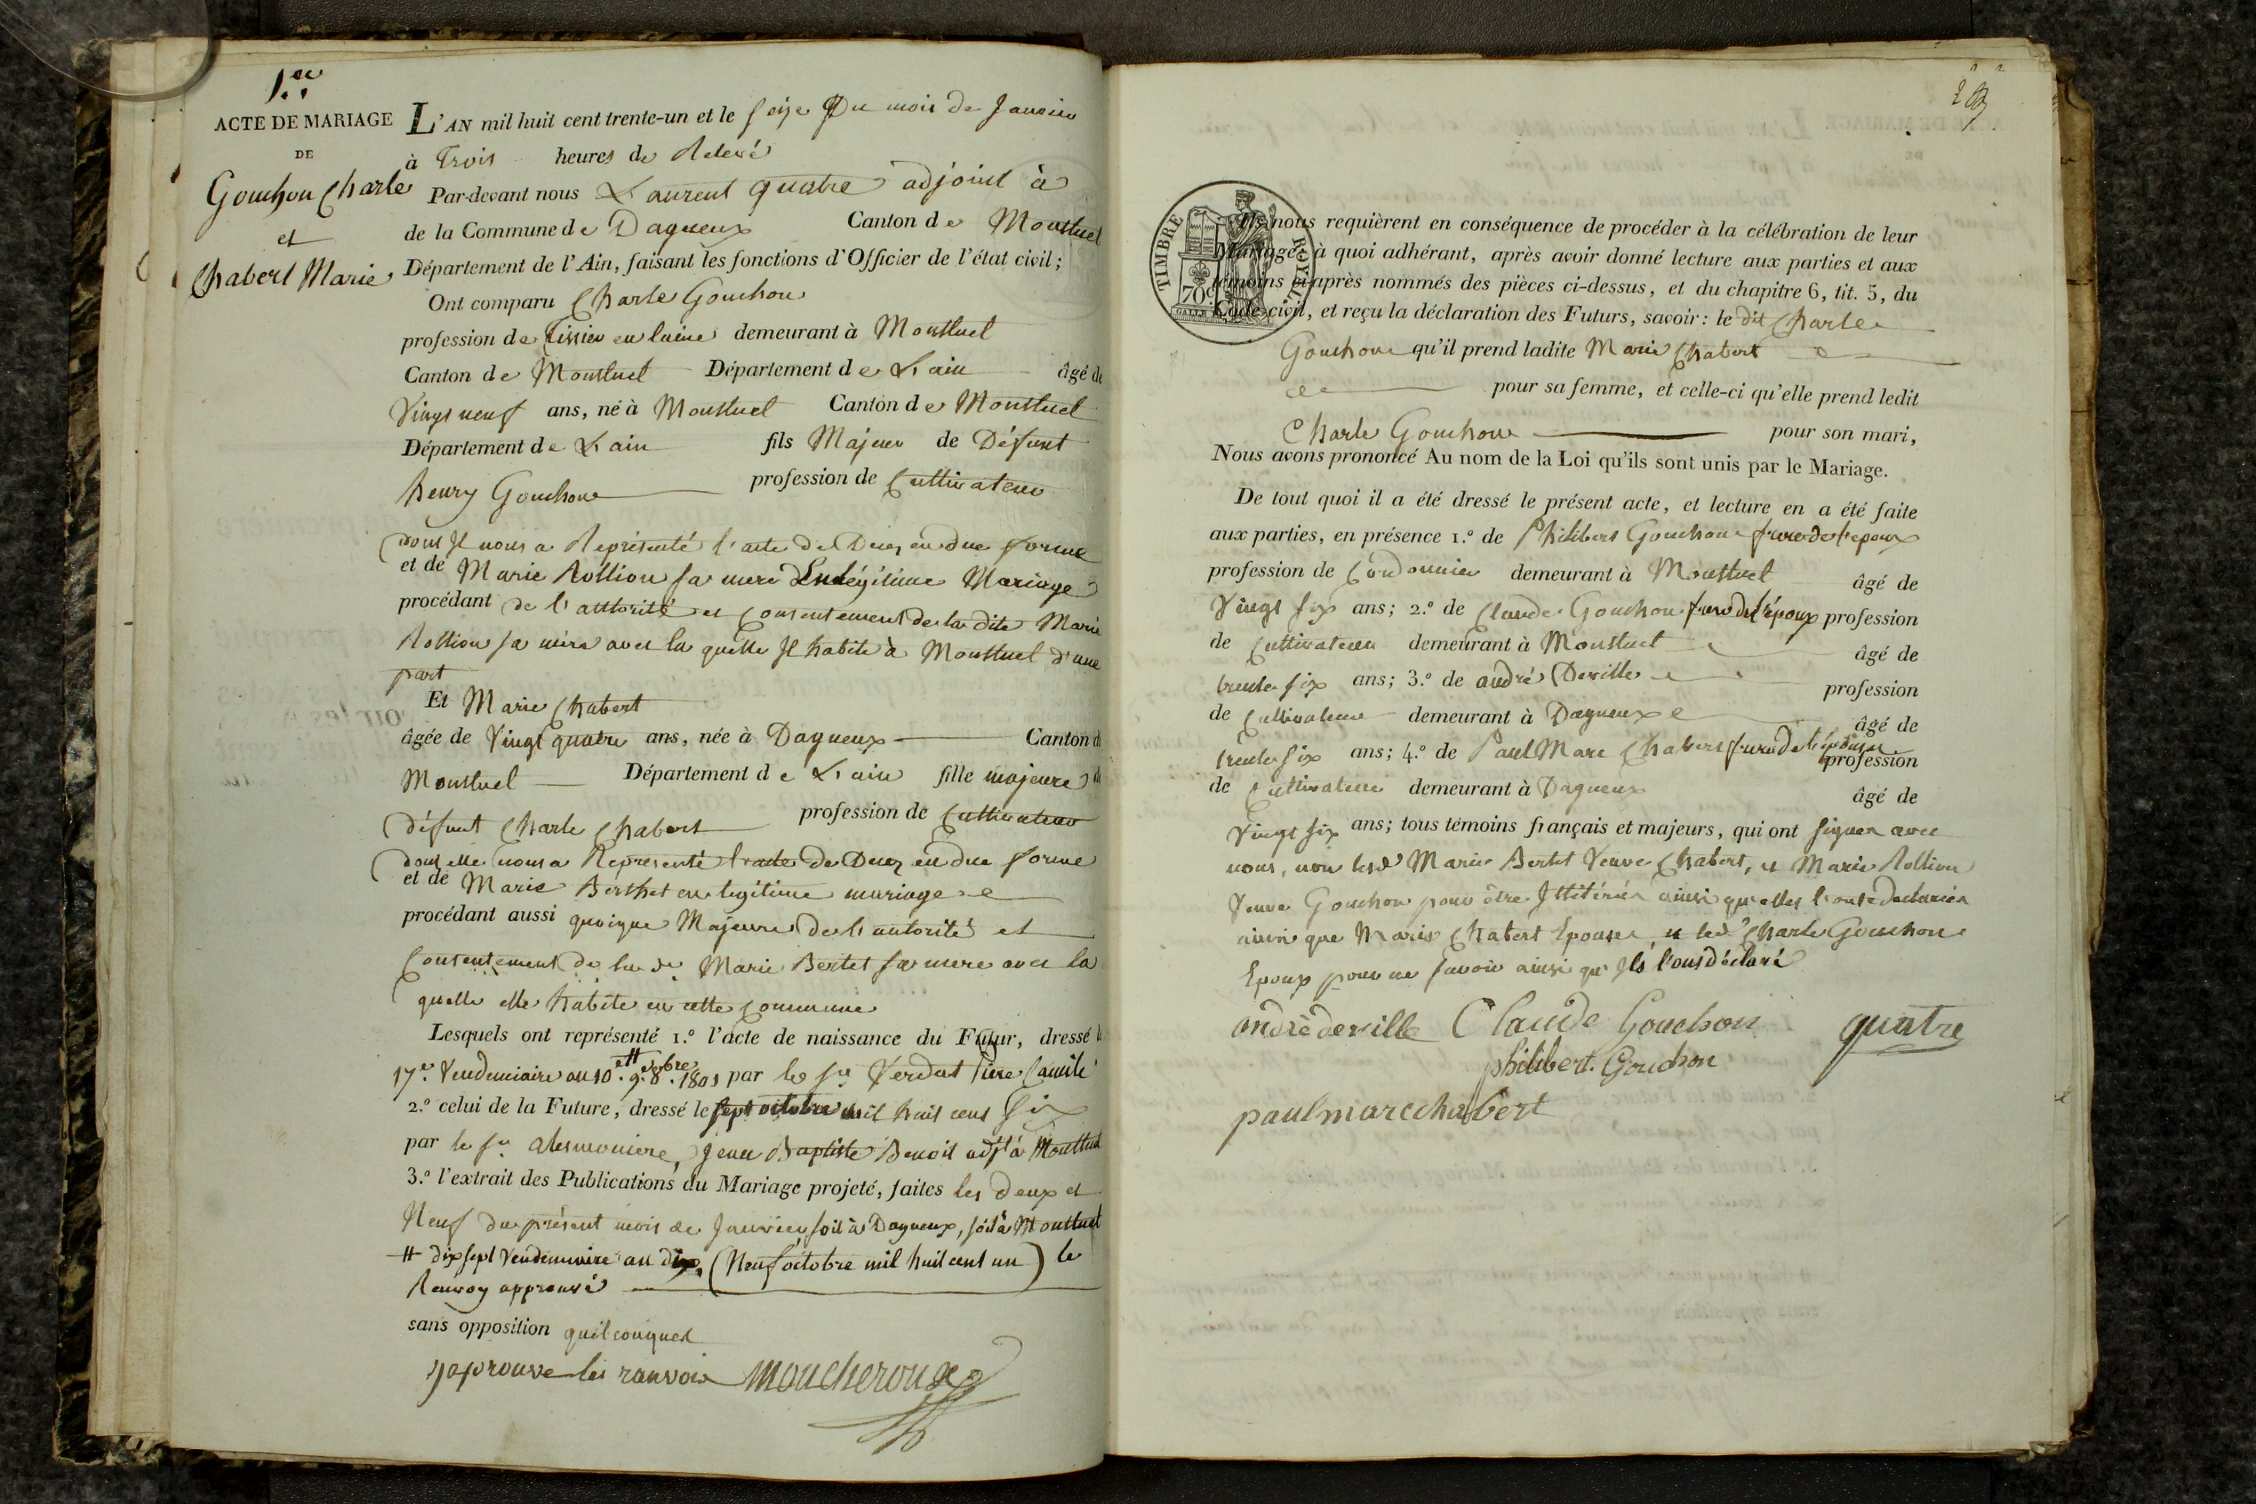 1.er
ACTE DE MARIAGE
DE
Gouchon Charle
et
Chabert Marie
L'AN mil huit cent trente-un et le seize Du mois de Janvier
à Trois heures de Relevé
Par-devant nous Laurent quatre adjoint à
de la Commune de Dagneux Canton de Montluel
Département de l'Ain, faisant les fonctions d'Officier de l'état civil;
Ont comparu Charle Gouchon
profession de Tissier en laine demeurant à Montluel
Canton de Montluel Département de L'ain âgé de
Vingt neuf ans, né à Montluel Canton de Montluel
Département de L'ain fils Majeur de Défunt
henry Gouchon profession de Cultivateur
dont Il nous a Représenté l'acte de Decez en due forme
et de Marie Rollion sa mere Enlégitime Mariage
procédant de l'attorité et Consentement de la dite Marie
Rollion sa mére avec la quelle Il habite à Montluel d'une
part
Et Marie Chabert
âgée de Vingt quatre ans, née à Dagneux Canton de
Montluel Département de L'ain fille majeure de
défunt Charle Chabert profession de Cultivateur
dont elle nous a Représenté l'acte de Decez en due forme
et de Marie Berthet en legitime mariage
procédant aussi quoique Majeure de l'autorité et
Consentement de la de Marie Bertet sa mere avec la
quelle elle habite en cette Commune
Lesquels ont représenté 1.° l'acte de naissance du Futur, dressé le
17.e Vendemiaire an 10 # 9. 8.bre 1801 par le sr Verdat Piere Camile
2.° celui de la Future, dressé le sept octobre mil huit cent Six
par le sr alesmoniere, Jean Baptiste Benoit adjt à Montluel
3.° l'extrait des Publications du Mariage projeté, faites les deux et
Neuf du présent mois de Janvier soit à Dagneux, soit à Montluel
# dix sept Vendemiaire an dix, (Neuf octobre mil huit cent un) le
Renvoy approuvé
sans opposition quelconques
japrouve les ranvois moucheroux
TIMBRE ROYAL
70c
Ils nous requièrent en conséquence de procéder à la célébration de leur
Mariage; à quoi adhérant, après avoir donné lecture aux parties et aux
témoins ci-après nommés des pièces ci-dessus, et du chapitre 6, tit. 5, du
Code civil, et reçu la déclaration des Futurs, savoir: le dit Charle
Gouchon qu'il prend ladite Marie Chabert
pour sa femme, et celle-ci qu'elle prend ledit
Charle Gouchon pour son mari,
Nous avons prononcé Au nom de la Loi qu'ils sont unis par le Mariage.
De tout quoi il a été dressé le présent acte, et lecture en a été faite
aux parties, en présence 1.° de Philibert Gouchon frere de l'epoux
profession de Cordonnier demeurant à Montluel âgé de
Vingt six ans; 2.° de Claude Gouchon frere de l'époux profession
de Cultivateur demeurant à Montluel âgé de
trente six ans; 3.° de andré Deville profession
de Cultivateur demeurant à Dagneux âgé de
trente six ans; 4.° de Paul Marc Chabert frere de l'épouse profession
de Cultivateur demeurant à Dagneux âgé de
Vingt six ans; tous témoins français et majeurs, qui ont signer avec
nous, non lesd Marie Bertet Veuve Chabert, et Marie Rollion
Veuve Gouchon pour être Ilitérées ainsi qu'elles l'ont declarées
ainsi que Marie Chabert Epouse, et led Charle Gouchon
Epoux pour ne savoir ainsi qu'Ils l'ont déclaré
andrè deville Claude Gouchon quatre
philibert Gouchon
paul marc chabert